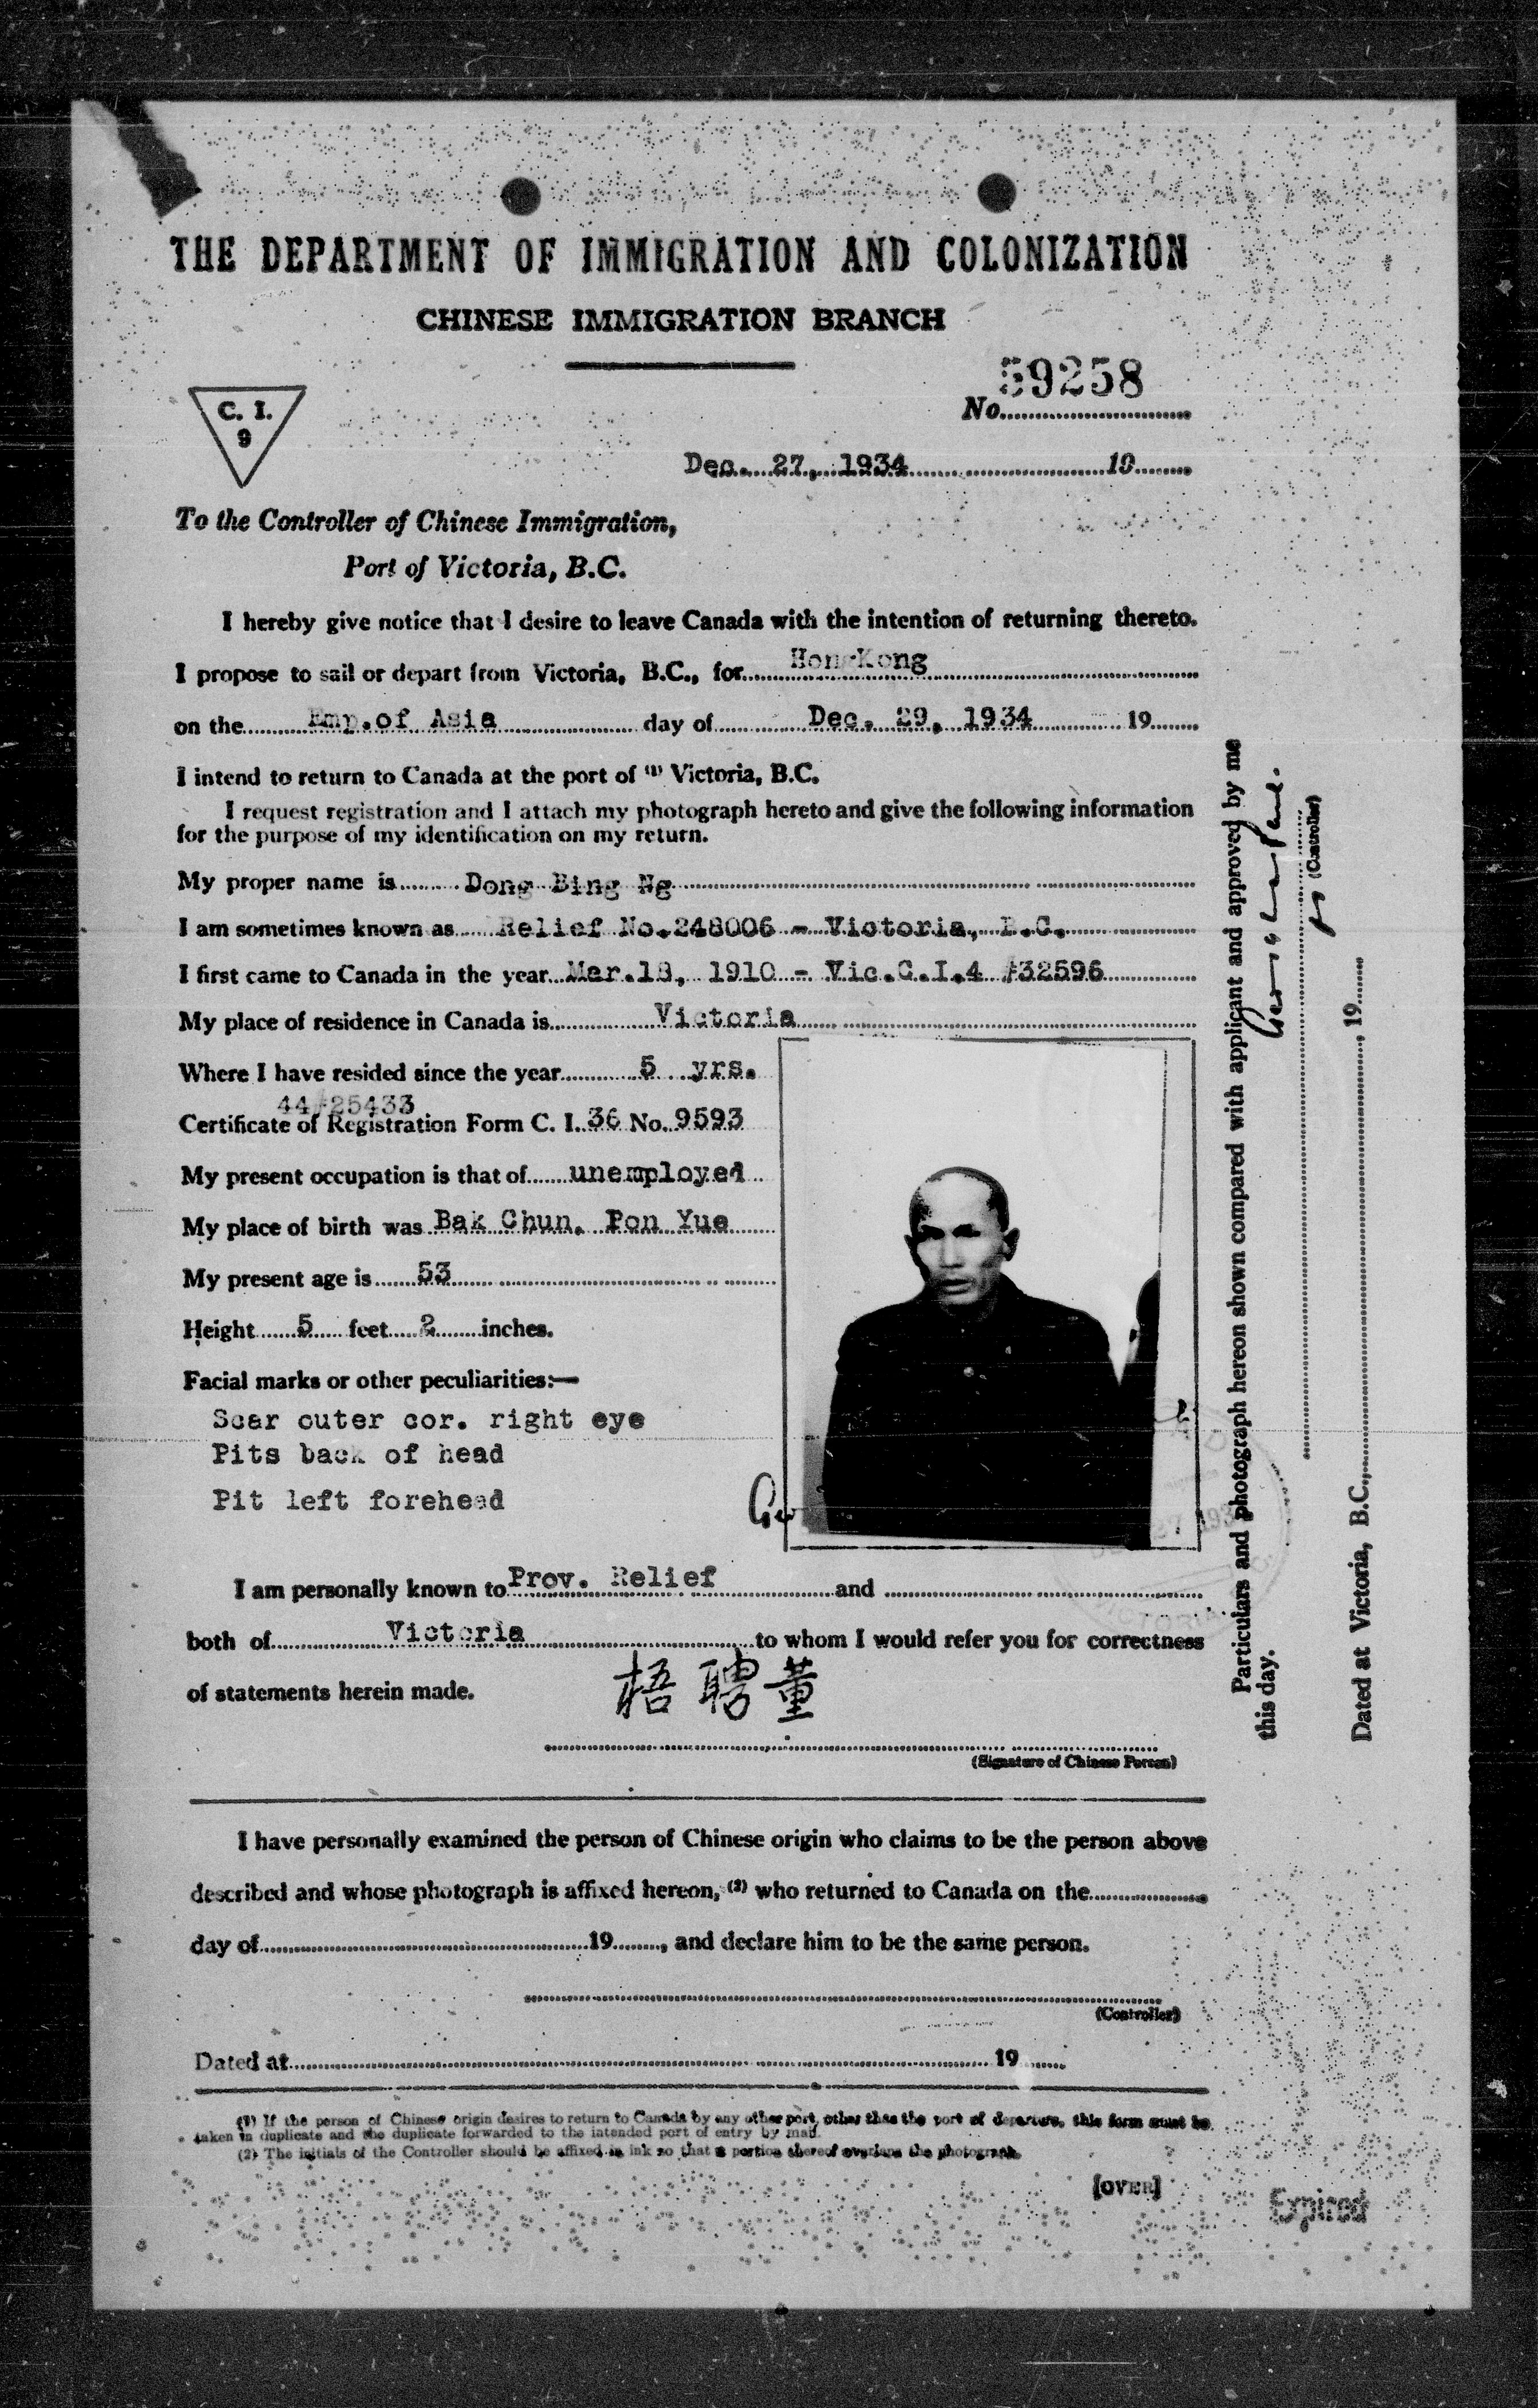 THE DEPARTMENT OF IMMIGRATION AND COLONIZATION
CHINESE IMMIGRATION BRANCH
C. I.
9
59258
No.
Dec. 27, 1934 19
To the Controller of Chinese Immigration,
Port of Victoria, B.C.
I hereby give notice that I desire to leave Canada with the intention of returning thereto.
I propose to sail or depart from Victoria, B.C., for HongKong
on the Emp.of Asia day of Dec. 29, 1934 19
I intend to return to Canada at the port of (1) Victoria, B.C.
I request registration and I attach my photograph hereto and give the following information
for the purpose of my identification on my return.
My proper name is Dong Bing Ng
I am sometimes known as Relief No.248006 - Victoria, B.C.
I first came to Canada in the year Mar.18, 1910 - Vic.C.I.4 #32596
My place of residence in Canada is Victoria
Where I have resided since the year 5 yrs.
44#25433
Certificate of Registration Form C. I. 36 No. 9593
My present occupation is that of unemployed
My place of birth was Bak Chun, Pon Yue
My present age is 53
Height 5 feet 2 inches.
Facial marks or other peculiarities:—
Scar outer cor. right eye
Pits back of head
Pit left forehead
I am personally known to Prov. Relief and
both of Victoria to whom I would refer you for correctness
of statements herein made.
梧聘董
(Signature of Chinese Person)
I have personally examined the person of Chinese origin who claims to be the person above
described and whose photograph is affixed hereon, (2) who returned to Canada on the
day of 19 , and declare him to be the same person.
(Controller)
Dated at 19
(1) If the person of Chinese origin desires to return to Canada by any other port, other than the port of departure, this form must be
taken in duplicate and the duplicate forwarded to the intended port of entry by mail.
(2) The initials of the Controller should be affixed in ink so that a portion thereof overlaps the photograph.
[OVER]
Expired
Particulars and photograph hereon shown compared with applicant and approved by me
this day.
(Controller)
Dated at Victoria, B.C., , 19